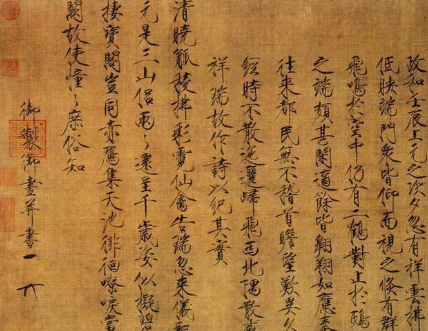 政和壬辰上元之次夕忽有祥雲拂
低映端門衆皆仰而視之倏有群
飛鳴於空中仍有二鶴對止於鴟
之端頗甚閑適餘皆翱翔如應奏
往來都民無不稽首瞻望歎異久
經時不散迤邐歸飛西北隅散
祥瑞故作詩以紀其實
清曉觚稜拂彩霓仙禽告瑞忽來儀
元是三山侶兩〻還呈千歲姿似擬碧
棲寶閣豈同赤鴈集天池徘徊嘹唳當
闕故使憧〻庶俗知
御製御畫并書